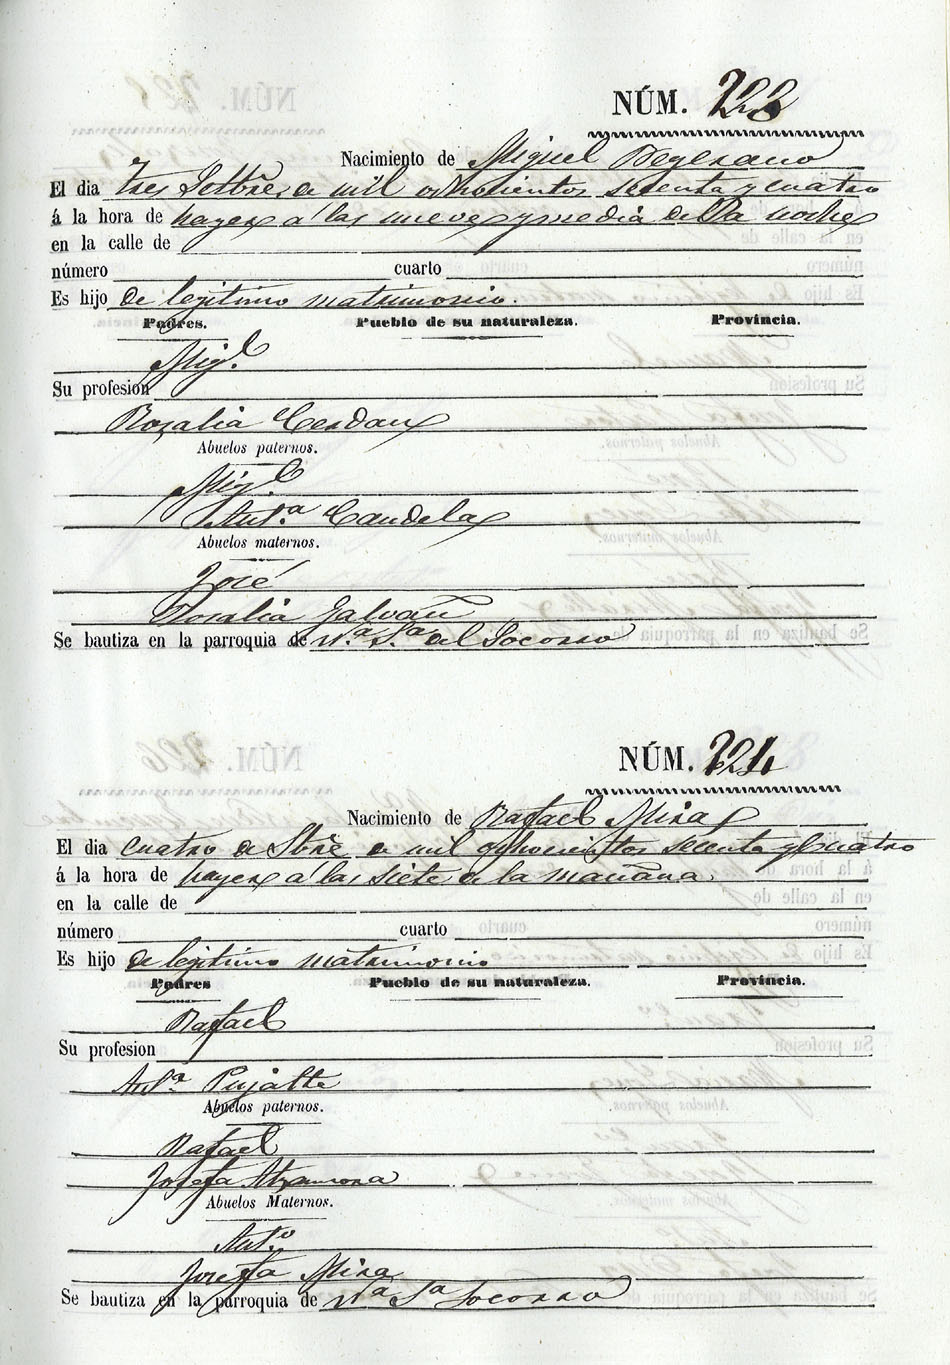 NÚM. 223
Nacimiento de Miguel Degerano
El dia tres Setbre, de mil ochocientos setenta y cuatro
á la hora de hayer a las nueve y media de la noche
en la calle de
número cuarto
Es hijo de legitimo matrimonio.
Padres. Pueblo de su naturaleza. Provincia.
Migl.
Su profesion
Rosalia Cerdan
Abuelos paternos.
Migl.
Anta. Candela
Abuelos maternos.
José
Rosalia Galvañ
Se bautiza en la parroquia de Na. Sa. del Socorro
NÚM. 224
Nacimiento de Rafael Mira
El dia cuatro de Sbre de mil ochocientos setenta y cuatro
á la hora de hayer a las siete de la mañana
en la calle de
número cuarto
Es hijo de legitimo matrimonio
Padres Pueblo de su naturaleza. Provincia.
Rafael
Su profesion
Anta Pujalte
Abuelos paternos.
Rafael
Josefa
Abuelos Maternos.
Anto
Josefa Mira
Se bautiza en la parroquia de Na Sa Socorro